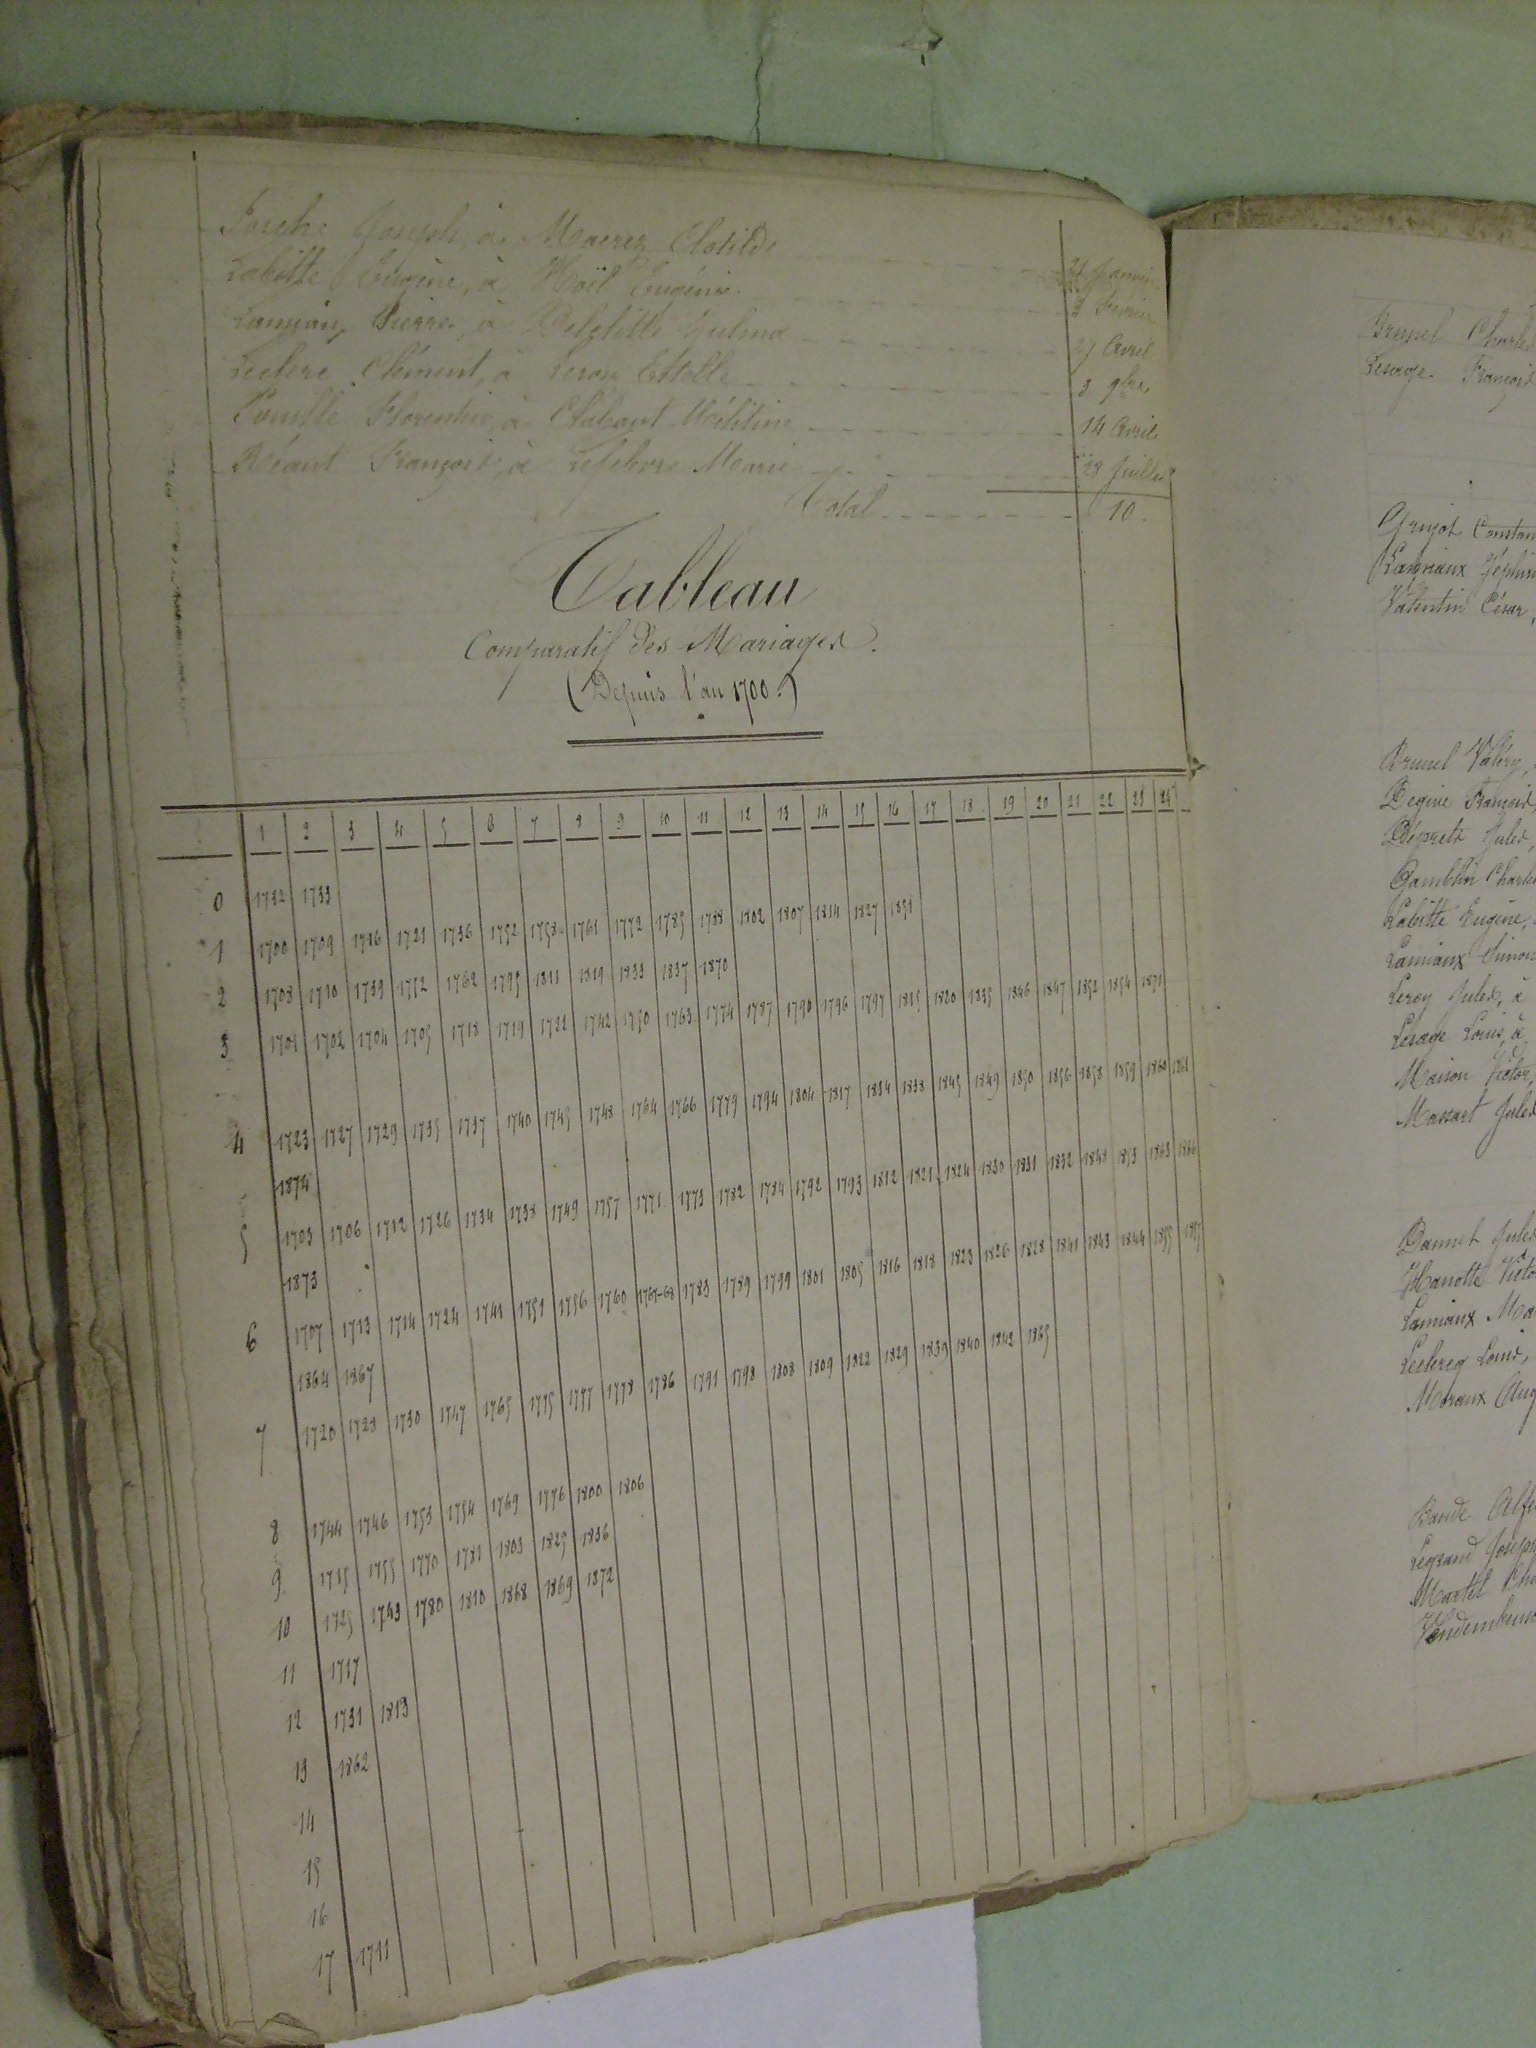 Joseph, à Macrez Clotilde
Labitte Eugène, à Noël Eugénie 3 Février
Lamiaux Pierre, à Delétille Zulma 27 Avril
Leclerc Clément, à Leroy Estelle 3 9bre
Florentin, à Chabaut 14 Avril
François, à Lefebvre Marie 28 Juillet
Total 10.
Tableau
Comparatif des Mariages.
(Depuis l'an 1700.)
1 2 3 4 5 6 7 8 9 10 11 12 13 14 15 16 17 18 19 20 21 22 23 24
0 1732 1733
1 1700 1709 1716 1721 1736 1752 1758 1761 1772 1785 1788 1802 1807 1814 1827 1851
2 1708 1710 1739 1772 1762 1795 1811 1819 1833 1837 1870
3 1701 1702 1704 1705 1718 1719 1722 1742 1750 1763 1774 1787 1790 1796 1797 1815 1820 1835 1846 1847 1852 1854 1871
4 1723 1727 1729 1735 1737 1740 1745 1748 1764 1766 1779 1794 1804 1817 1834 1838 1845 1849 1850 1856 1858 1859 1860 1861
1874
5 1703 1706 1712 1726 1734 1738 1749 1757 1771 1773 1782 1784 1792 1793 1812 1821 1824 1830 1831 1832 1848 1853 1863 1866
1873
6 1707 1713 1714 1724 1741 1751 1756 1760 1767-68 1783 1789 1799 1801 1805 1816 1818 1823 1826 1828 1841 1843 1844 1855 1857
1864 1867
7 1720 1728 1730 1747 1765 1775 1777 1778 1786 1791 1798 1808 1809 1822 1829 1839 1840 1842 1865
8 1744 1746 1753 1754 1769 1776 1800 1806
9 1715 1755 1770 1781 1803 1825 1836
10 1725 1743 1780 1810 1868 1869 1872
11 1717
12 1731 1813
13 1862
14
15
16
17 1711
Brunel Charles
Lesage François
Grujot Constan
Lamiaux Zéphir
Valentin César,
Brunel Valéry,
Degine François,
Déprets Jules,
Gamblin Charles
Labitte Eugène,
Lamiaux Simon
Leroy Jules, à
Lesage Louis, à
Maison Victor,
Massart Jules
Dannet Jules
Hanotte Victo
Lamiaux Ma
Leclercq Louis,
Moraux Aug
Baude Alfr
Legrand Joseph
Martel Cha